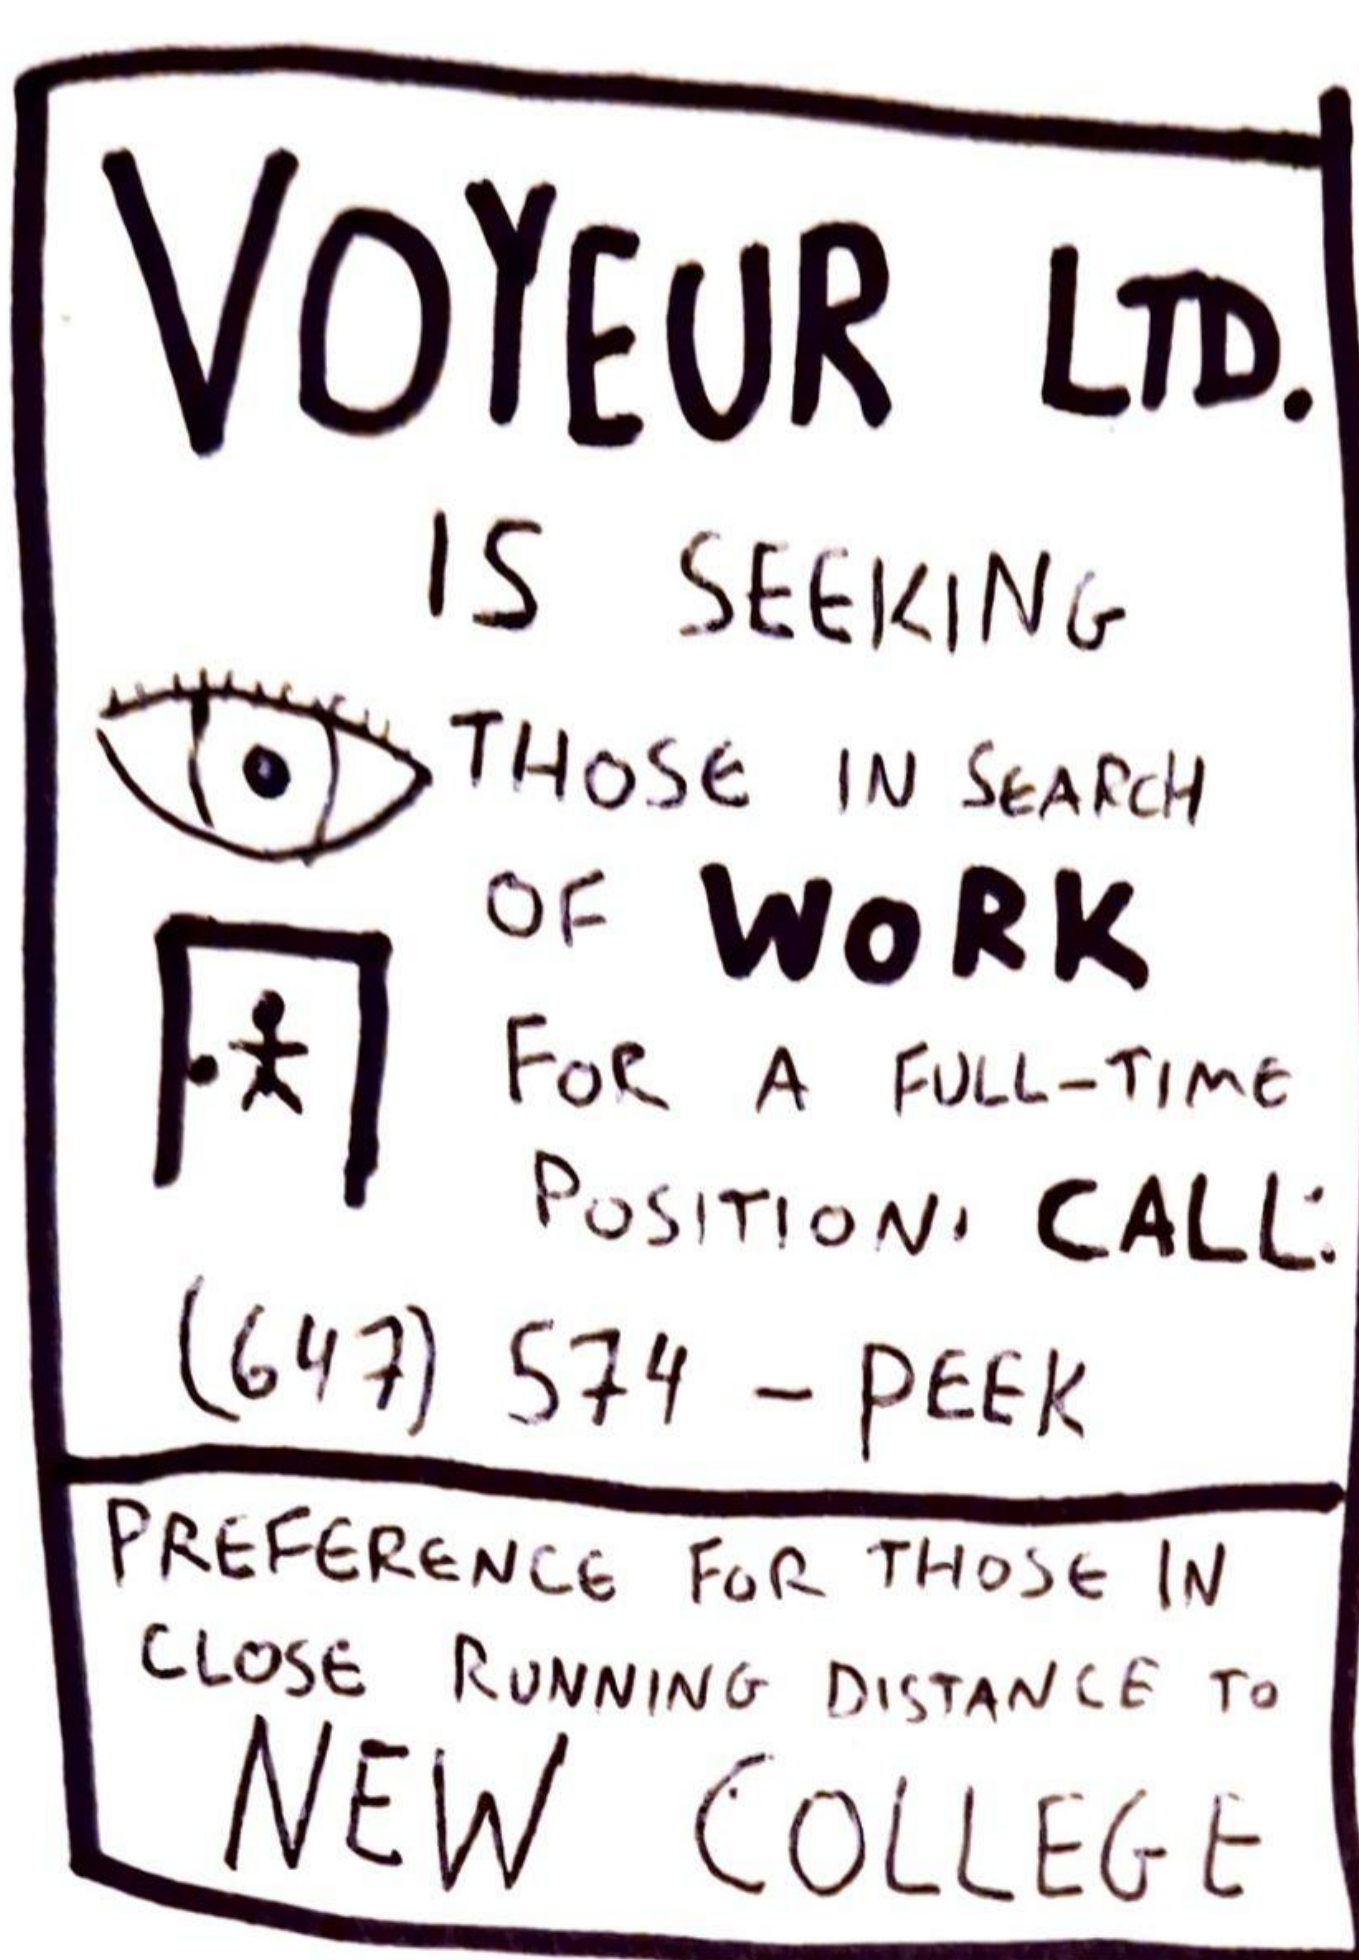 VOYEUR LTD.
IS SEEKING
THOSE IN SEARCH
OF WORK
FOR A FULL-TIME
POSITION, CALL:
(647) 574 - PEEK
PREFERENCE FOR THOSE IN
CLOSE RUNNING DISTANCE TO
NEW COLLEGE